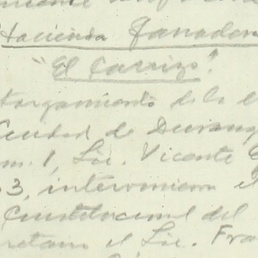 Hacienda Ganadera
"El Carrizo".
otorgamiento de la e
Ciudad de Durang
m. 1, Lic. Vicente G
3, intervinieron el
Constitucional del
cretario el Lic. Fra